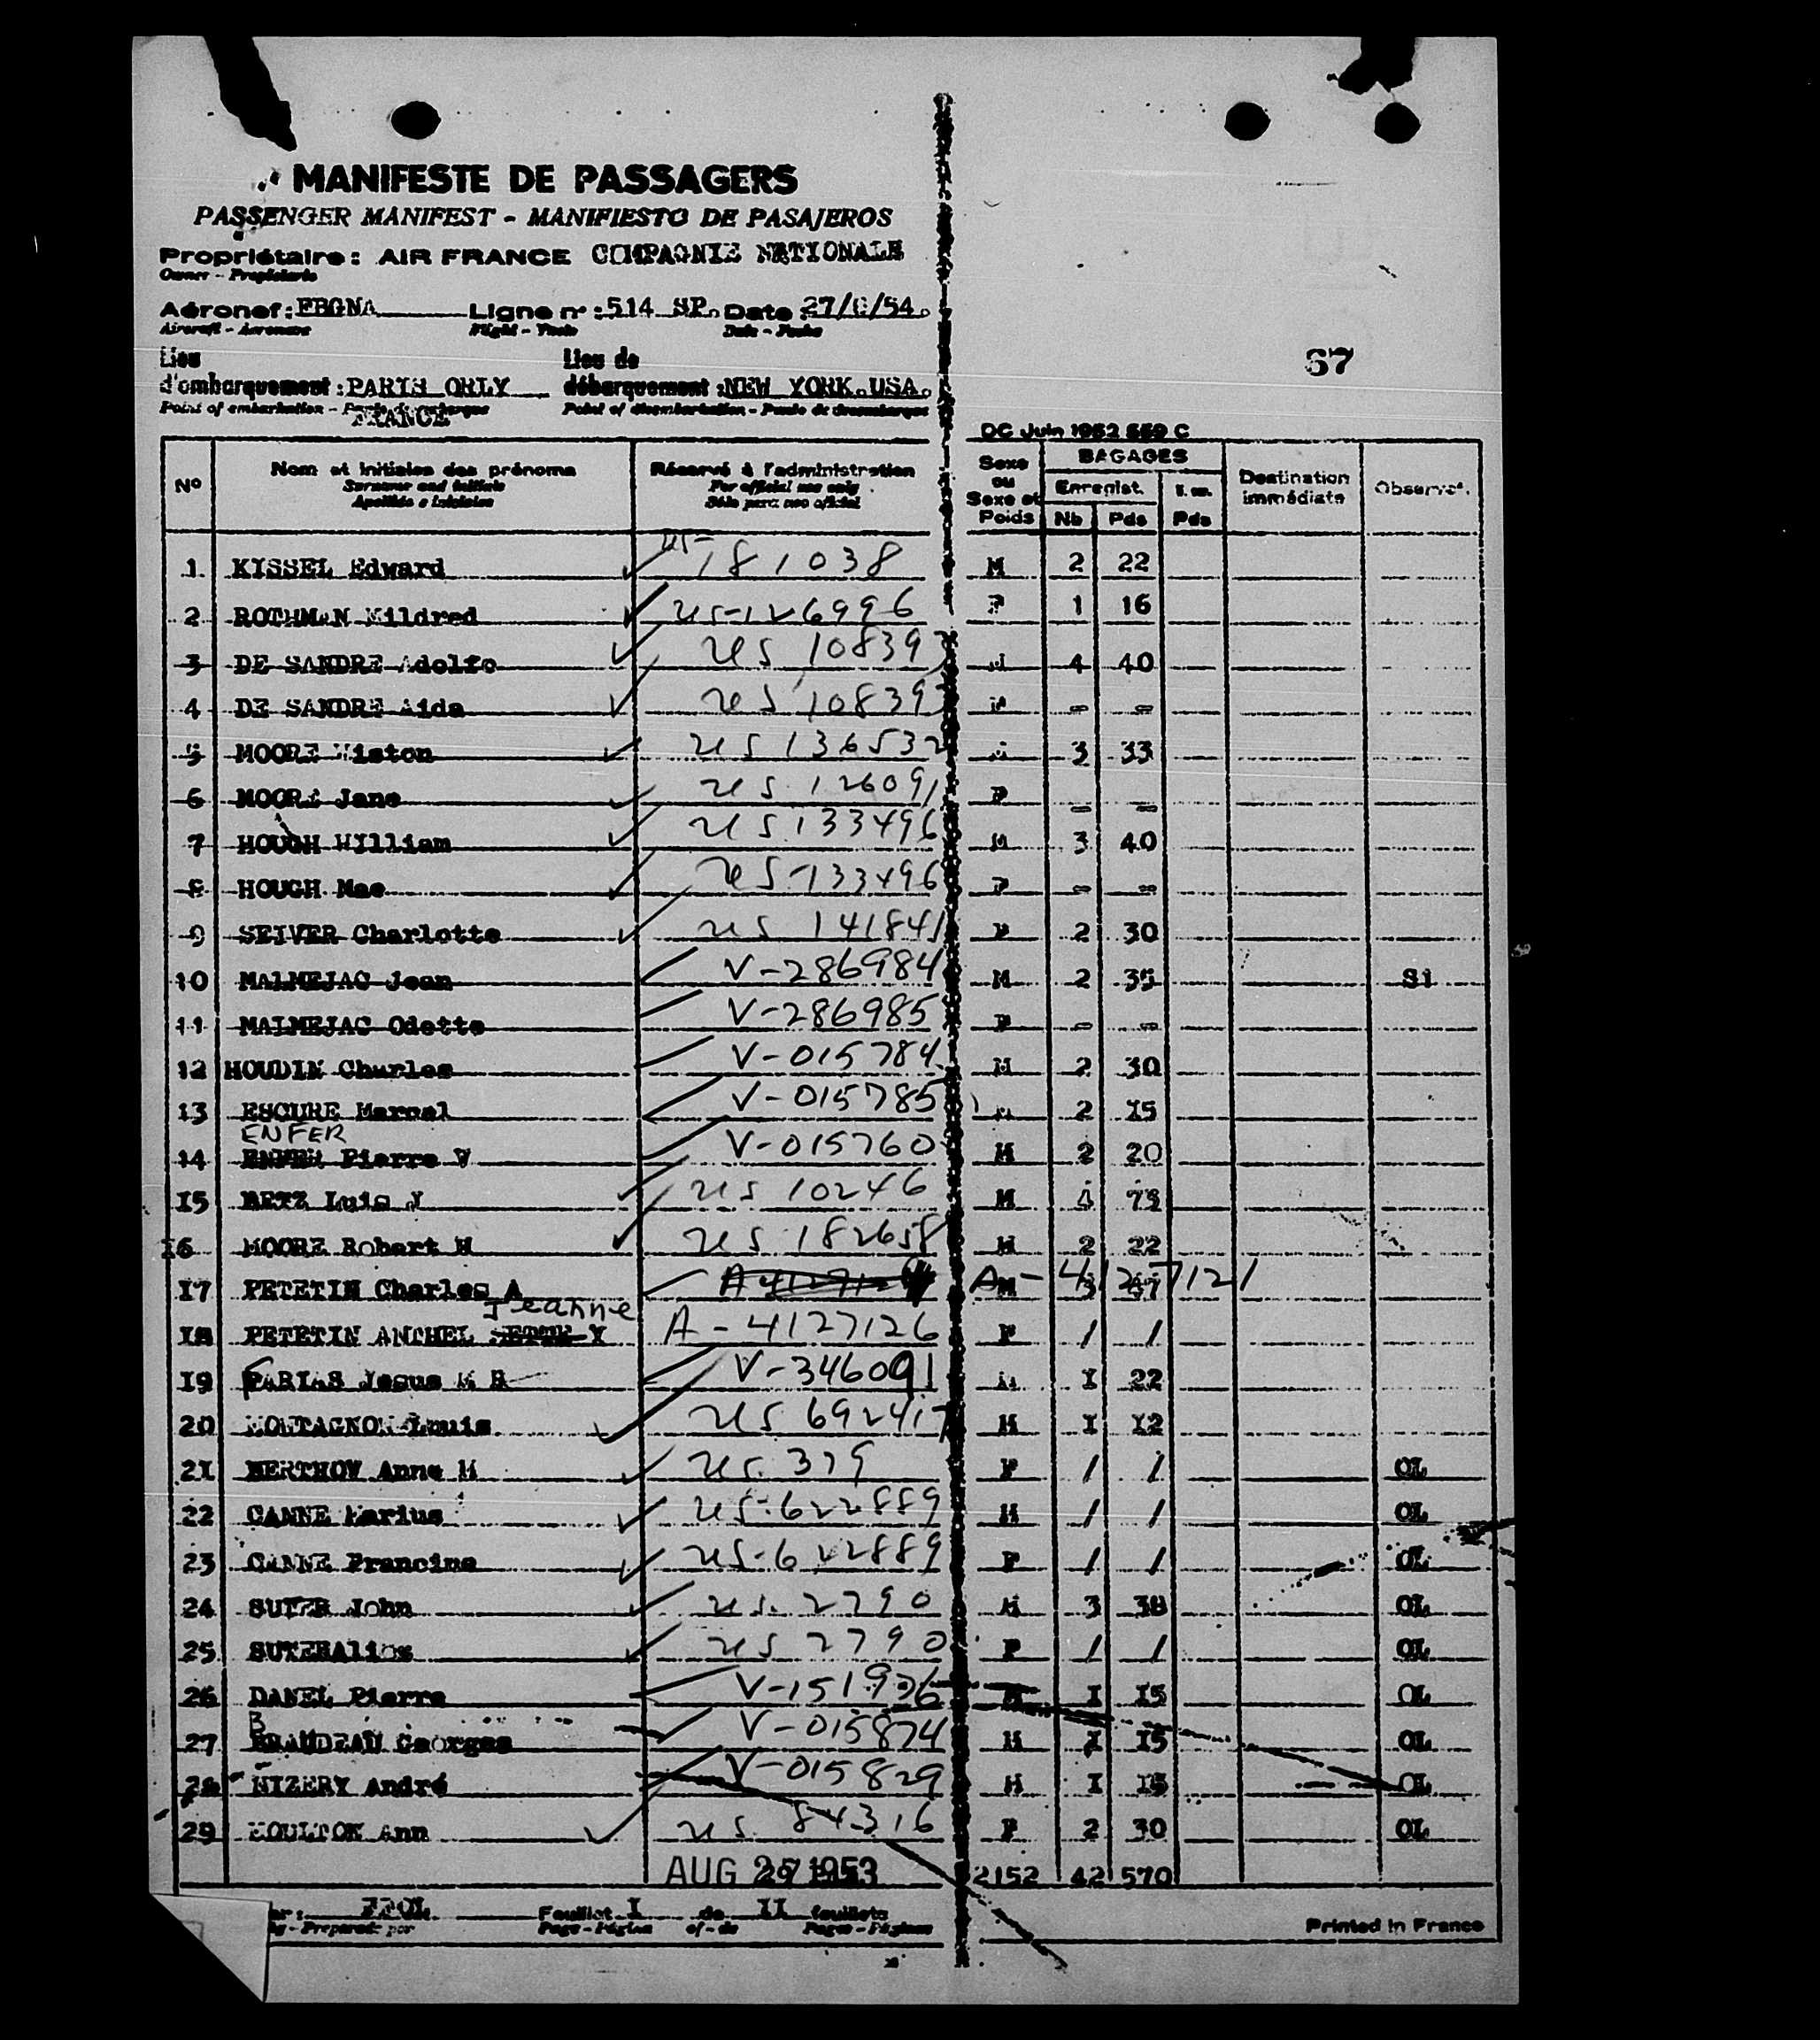 MANIFESTE DE PASSAGERS
PASSENGER MANIFEST - MANIFIESTO DE PASAJEROS
Propriétaire : AIR FRANCE COMPAGNIE NATIONALE
Owner - Propietario
Aéronef : FBGNA Ligne n° : 514 SP. Date : 27/8/54.
Aircraft - Aeronave Flight - Vuelo Date - Fecha
67
Lieu Lieu de
d'embarquement : PARIS ORLY débarquement : NEW YORK.USA.
Point of embarkation - Punto de embarque Point of disembarkation - Punto de desembarque
FRANCE
DC Juin 1952 559 C
N° Nom et initiales des prénoms Réservé à l'administration Sexe ou Sexe et Poids BAGAGES Destination immédiate Observat.
Surname and initials For official use only Enregist.
Apellidos e iniciales Sólo para uso oficial Nb Pds Pds
1 KISSEL Edward us 181038 M 2 22
2 ROTHMAN Mildred us-126996 F 1 16
3 DE SANDRE Adolfo us 10839 M 4 40
4 DE SANDRE Aida us 10839 F - -
5 MOORE Wiston us 136532 M 3 33
6 MOORE Jane us 126091 F - -
7 HOUGH William us 133496 M 3 40
8 HOUGH Mae us-133496 F - -
9 SEIVER Charlotte us 141841 F 2 30
10 MALMEJAC Jean V-286984 M 2 35 SI
11 MALMEJAC Odette V-286985 F - -
12 HOUDIN Charles V-015784 M 2 30
13 ESCURE Marcel V-015785 M 2 15
ENFER
14 Pierre V V-015760 M 2 20
15 BETZ Luis J us 10246 M 4 73
16 MOORE Robert H us 182658 M 2 22
17 PETETIN Charles A A-4127121 M
Jeanne
18 PETETIN ANTHEL Y A-4127126 F / /
19 FARIAS Jesus M R V-346091 M I 22
20 MONTAGNON Louis us 692417 M I 12
21 BERTHOW Anne M us. 379 F / / OL
22 CANNE Marius us-622889 M / / OL
23 CANNE Francine us-622889 F / / OL
24 SUTER John us. 2790 M 3 38 OL
25 SUTERAlice us 2790 F / / OL
26 DANEL Pierre V-151936 M I 15 OL
27 BRAUDEAU Georges V-015874 M I 15 OL
28 NIZERY André V-015829 M I 15 OL
29 MOULTON Ann us. 84316 F 2 30 OL
AUG 1953 2152 42 570
Feuillet I de II feuillets
- Prepared por Page - Página of - de Pages - Páginas
Printed in France